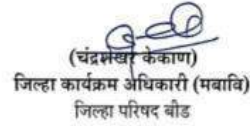 (चंद्रशेखर केकाण)
जिल्हा कार्यक्रम अधिकारी (मबावि)
जिल्हा परिषद बीड